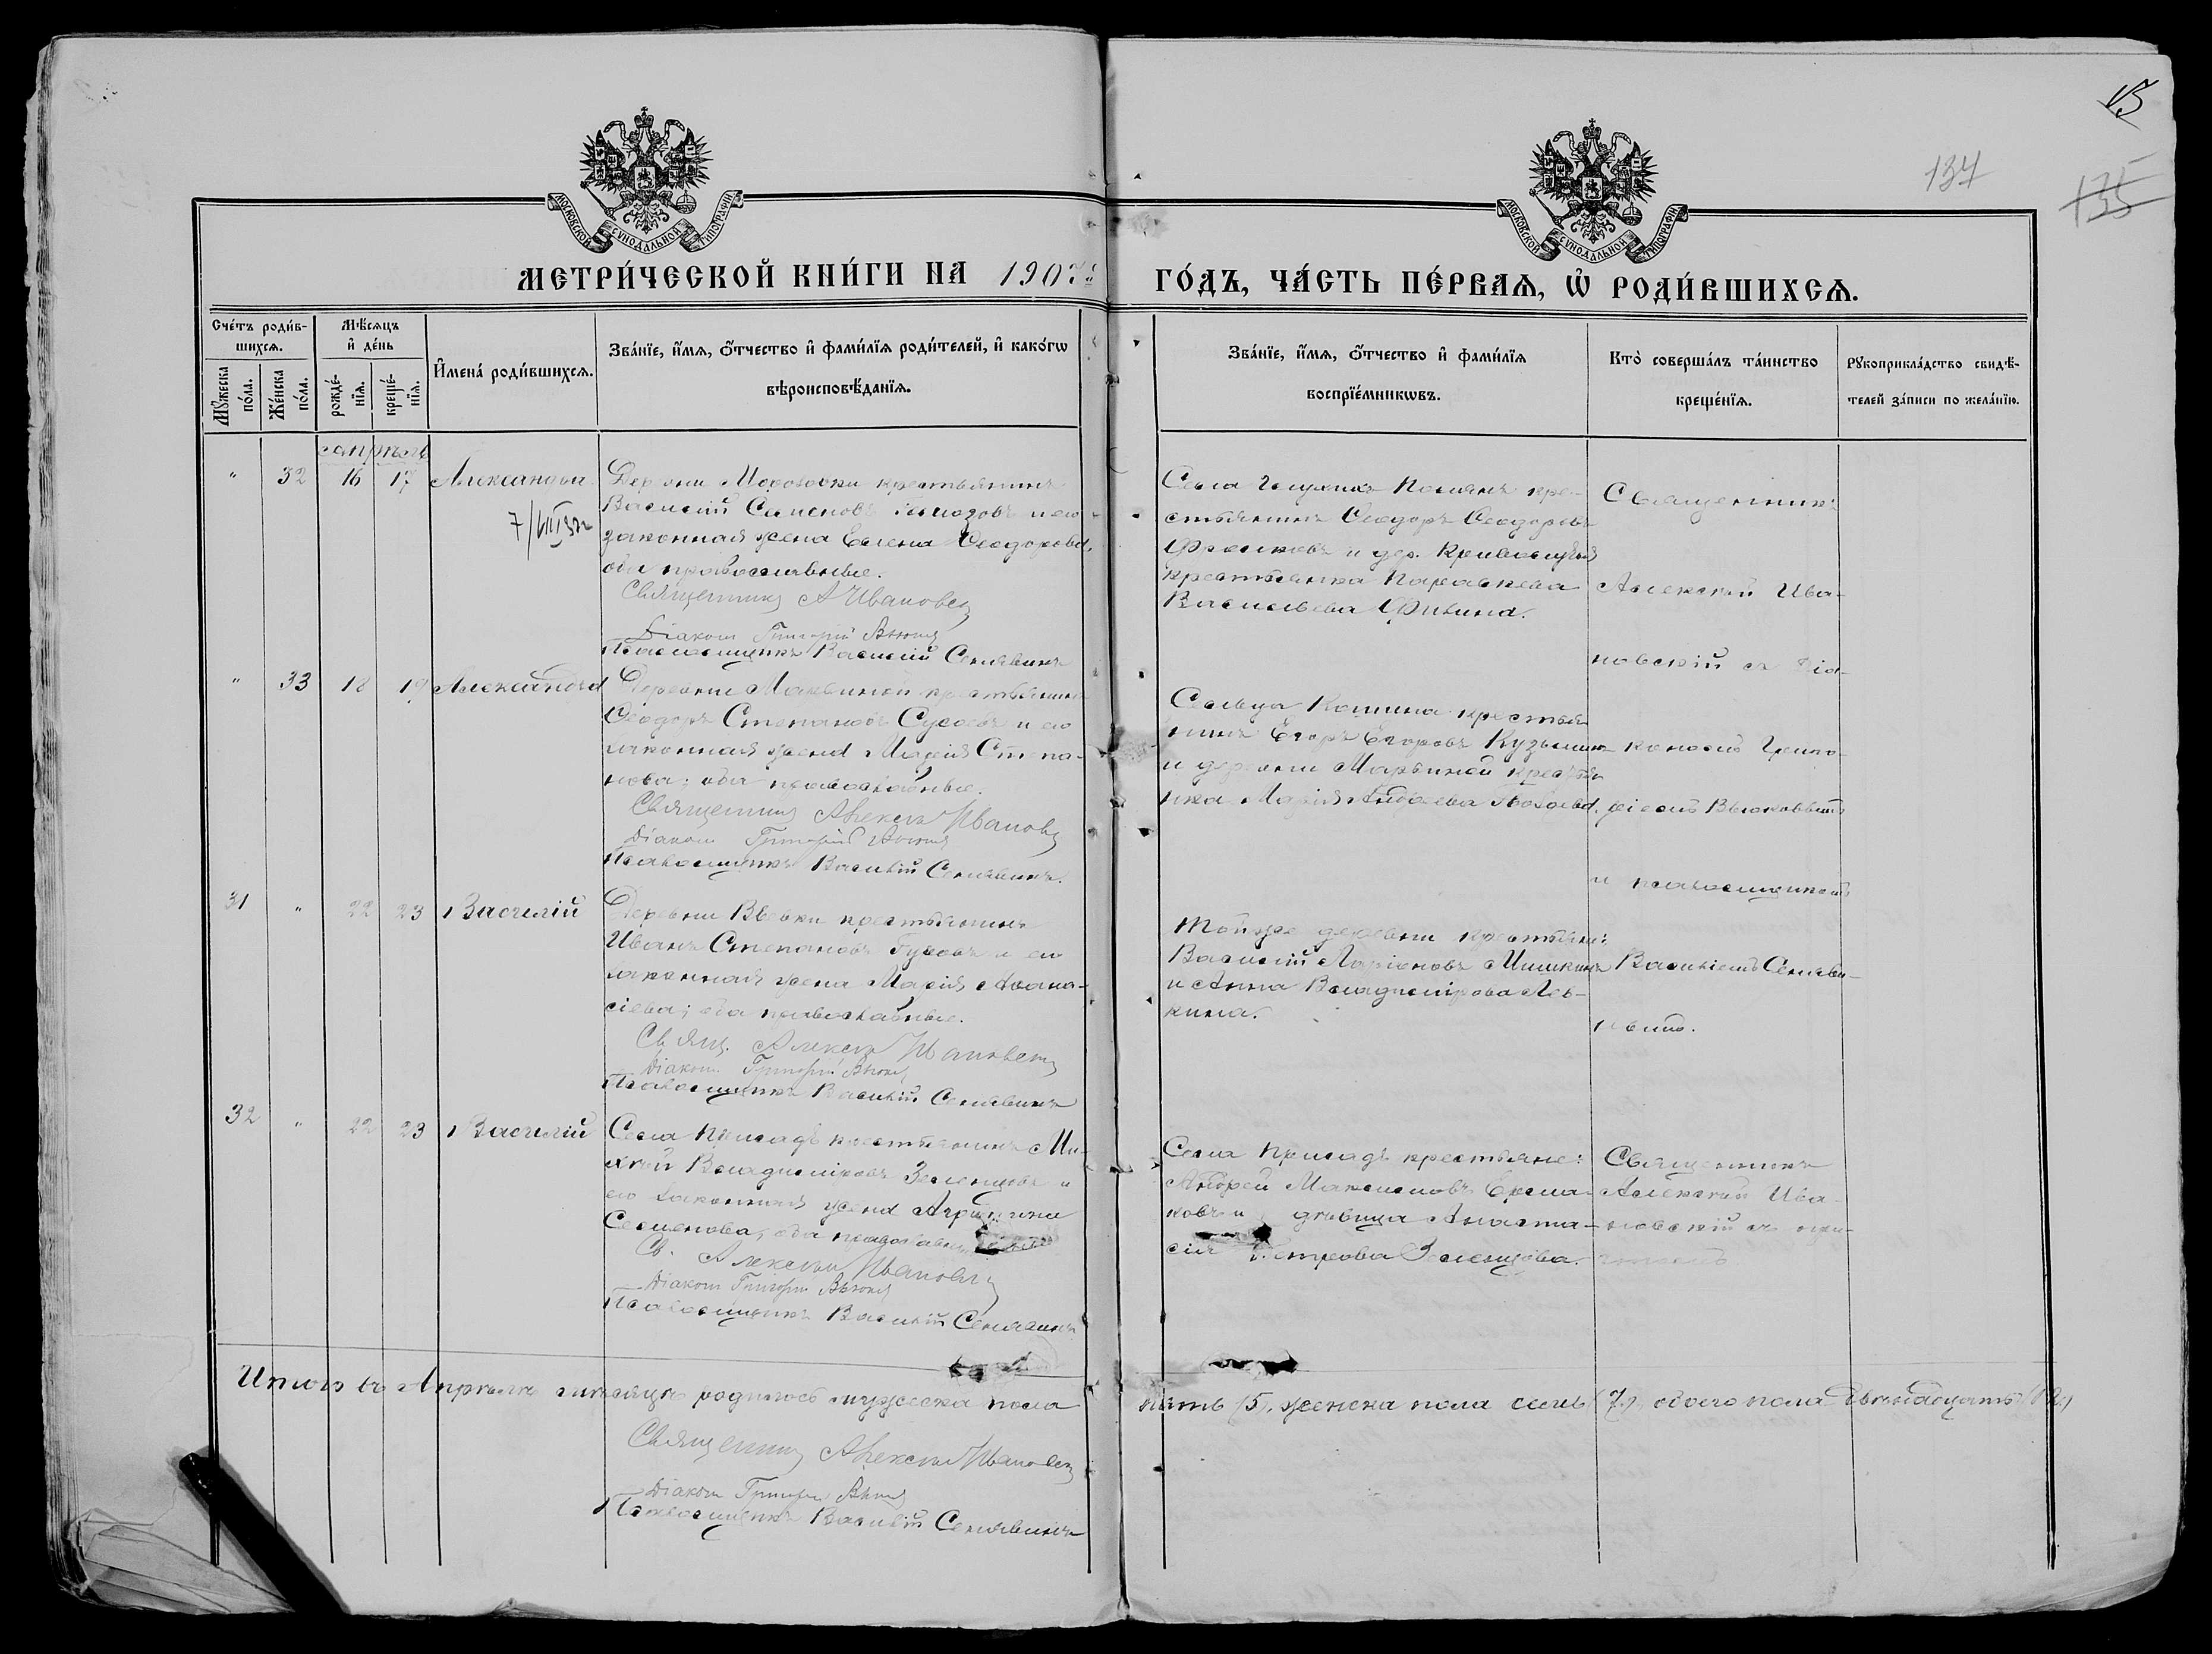 15
134
135
МОСКОВСКОЙ СѴНОДАЛЬНОЙ ТИПОГРАФІИ
МОСКОВСКОЙ СѴНОДАЛЬНОЙ ТИПОГРАФІИ
МЕТРИ́ЧЕСКОЙ КНИ́ГИ НА 1907й ГО́ДЪ, ЧА́СТЬ ПЕ́РВАѦ, Ѡ҆ РОДИ́ВШИХСѦ.
Сче́тъ роди́в-
шихсѧ.
Мꙋ́жеска по́ла.
Же́нска по́ла.
Мѣ́сѧцъ
и҆ де́нь
рожде́-
нїѧ.
креще́-
нїѧ.
И҆мена̀ роди́вшихсѧ.
Зва́нїе, и҆́мѧ, ѻ҆́тчество и҆ фами́лїѧ роди́телей, и҆ како́гѡ
вѣроисповѣ́данїѧ.
Зва́нїе, и҆́мѧ, ѻ҆́тчество и҆ фами́лїѧ
воспрїе́мникѡвъ.
Кто̀ соверша́лъ та́инство
креще́нїѧ.
Рꙋкоприкла́дство свидѣ́-
телей за́писи по жела́нїю.
апрѣль
" 32 16 17 Александра
Деревни Морозовки крестьянинъ
Василій Семеновъ и его
законная жена Елена Ѳеодорова,
оба православные.
Священникъ А Ивановскій
Діаконъ Григорій
Псаломщикъ Василій Сенявинъ
Села крe-
стьянинъ Ѳеодоръ Ѳеодоровъ
Фроликовъ и дер.
крестьянка Параскева
Васильева
Священникъ
Алексій Ива-
новскій съ діа-
кономъ Григо-
ріемъ
и псаломщикомъ
Василіемъ Сеняви-
нымъ.
" 33 18 19 Александра
Деревни крестьянинъ
Ѳеодоръ Степановъ Сусловъ и его
законная жена Марія Степа-
нова; оба православные.
Священникъ Алексій Ивановскій
Діаконъ Григорій
Псаломщикъ Василій Сенявинъ.
Сельца Кошина крестья-
нинъ Егоръ Егоровъ Кузьминъ
и деревни Марьиной крестьян-
ка Марія Андреева
31 " 22 23 Василій
Деревни крестьянинъ
Иванъ Степановъ Гусевъ и его
законная жена Марія Аѳана-
сіева; оба православные.
Свящ. Алексій Ивановскій
Діаконъ Григорій
Псаломщикъ Василій Сенявинъ
Той же деревни крестьяне:
Василій Ларіоновъ Мишкинъ
и Анна Владимірова Лев-
кина.
32 " 22 23 Василій
Села Приладъ крестьянинъ Ми-
хаилъ Владиміровъ Зеленцовъ и
его законная жена Агрипина
Семенова, оба православные
Св. Алексій Ивановскій
Діаконъ Григорій
Псаломщикъ Василій Сенявинъ
Села Приладъ крестьяне:
Андрей Максимовъ Ерма-
ковъ и дѣвица Анаста-
сія Петрова Зеленцова.
Священникъ
Алексій Ива-
новскій съ при-
чтомъ
Итого въ Апрѣлѣ мѣсяцѣ родилось мужеска пола пять (5), женска пола семь (7), обоего пола двѣнадцать (12)
Священникъ Алексій Ивановскій
Діаконъ Григорій
Псаломщикъ Василій Сенявинъ